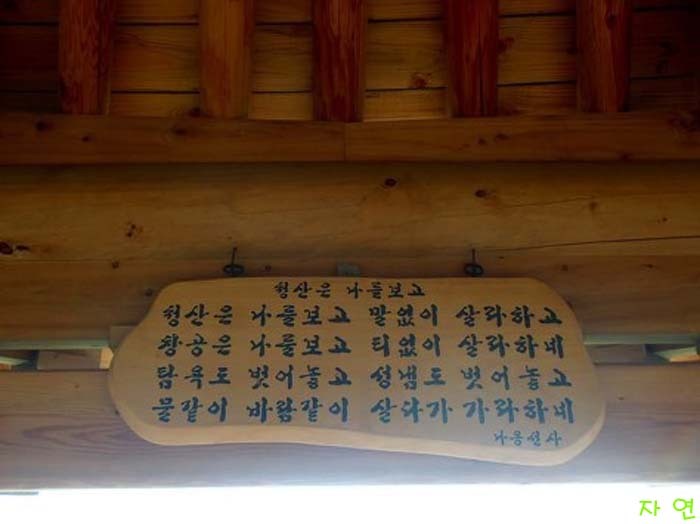 청산은 나를보고
청산은 나를보고 말없이 살라하고
창공은 나를보고 티없이 살라하네
탐욕도 벗어놓고 성냄도 벗어놓고
물같이 바람같이 살다가 가라하네
나옹선사
자연